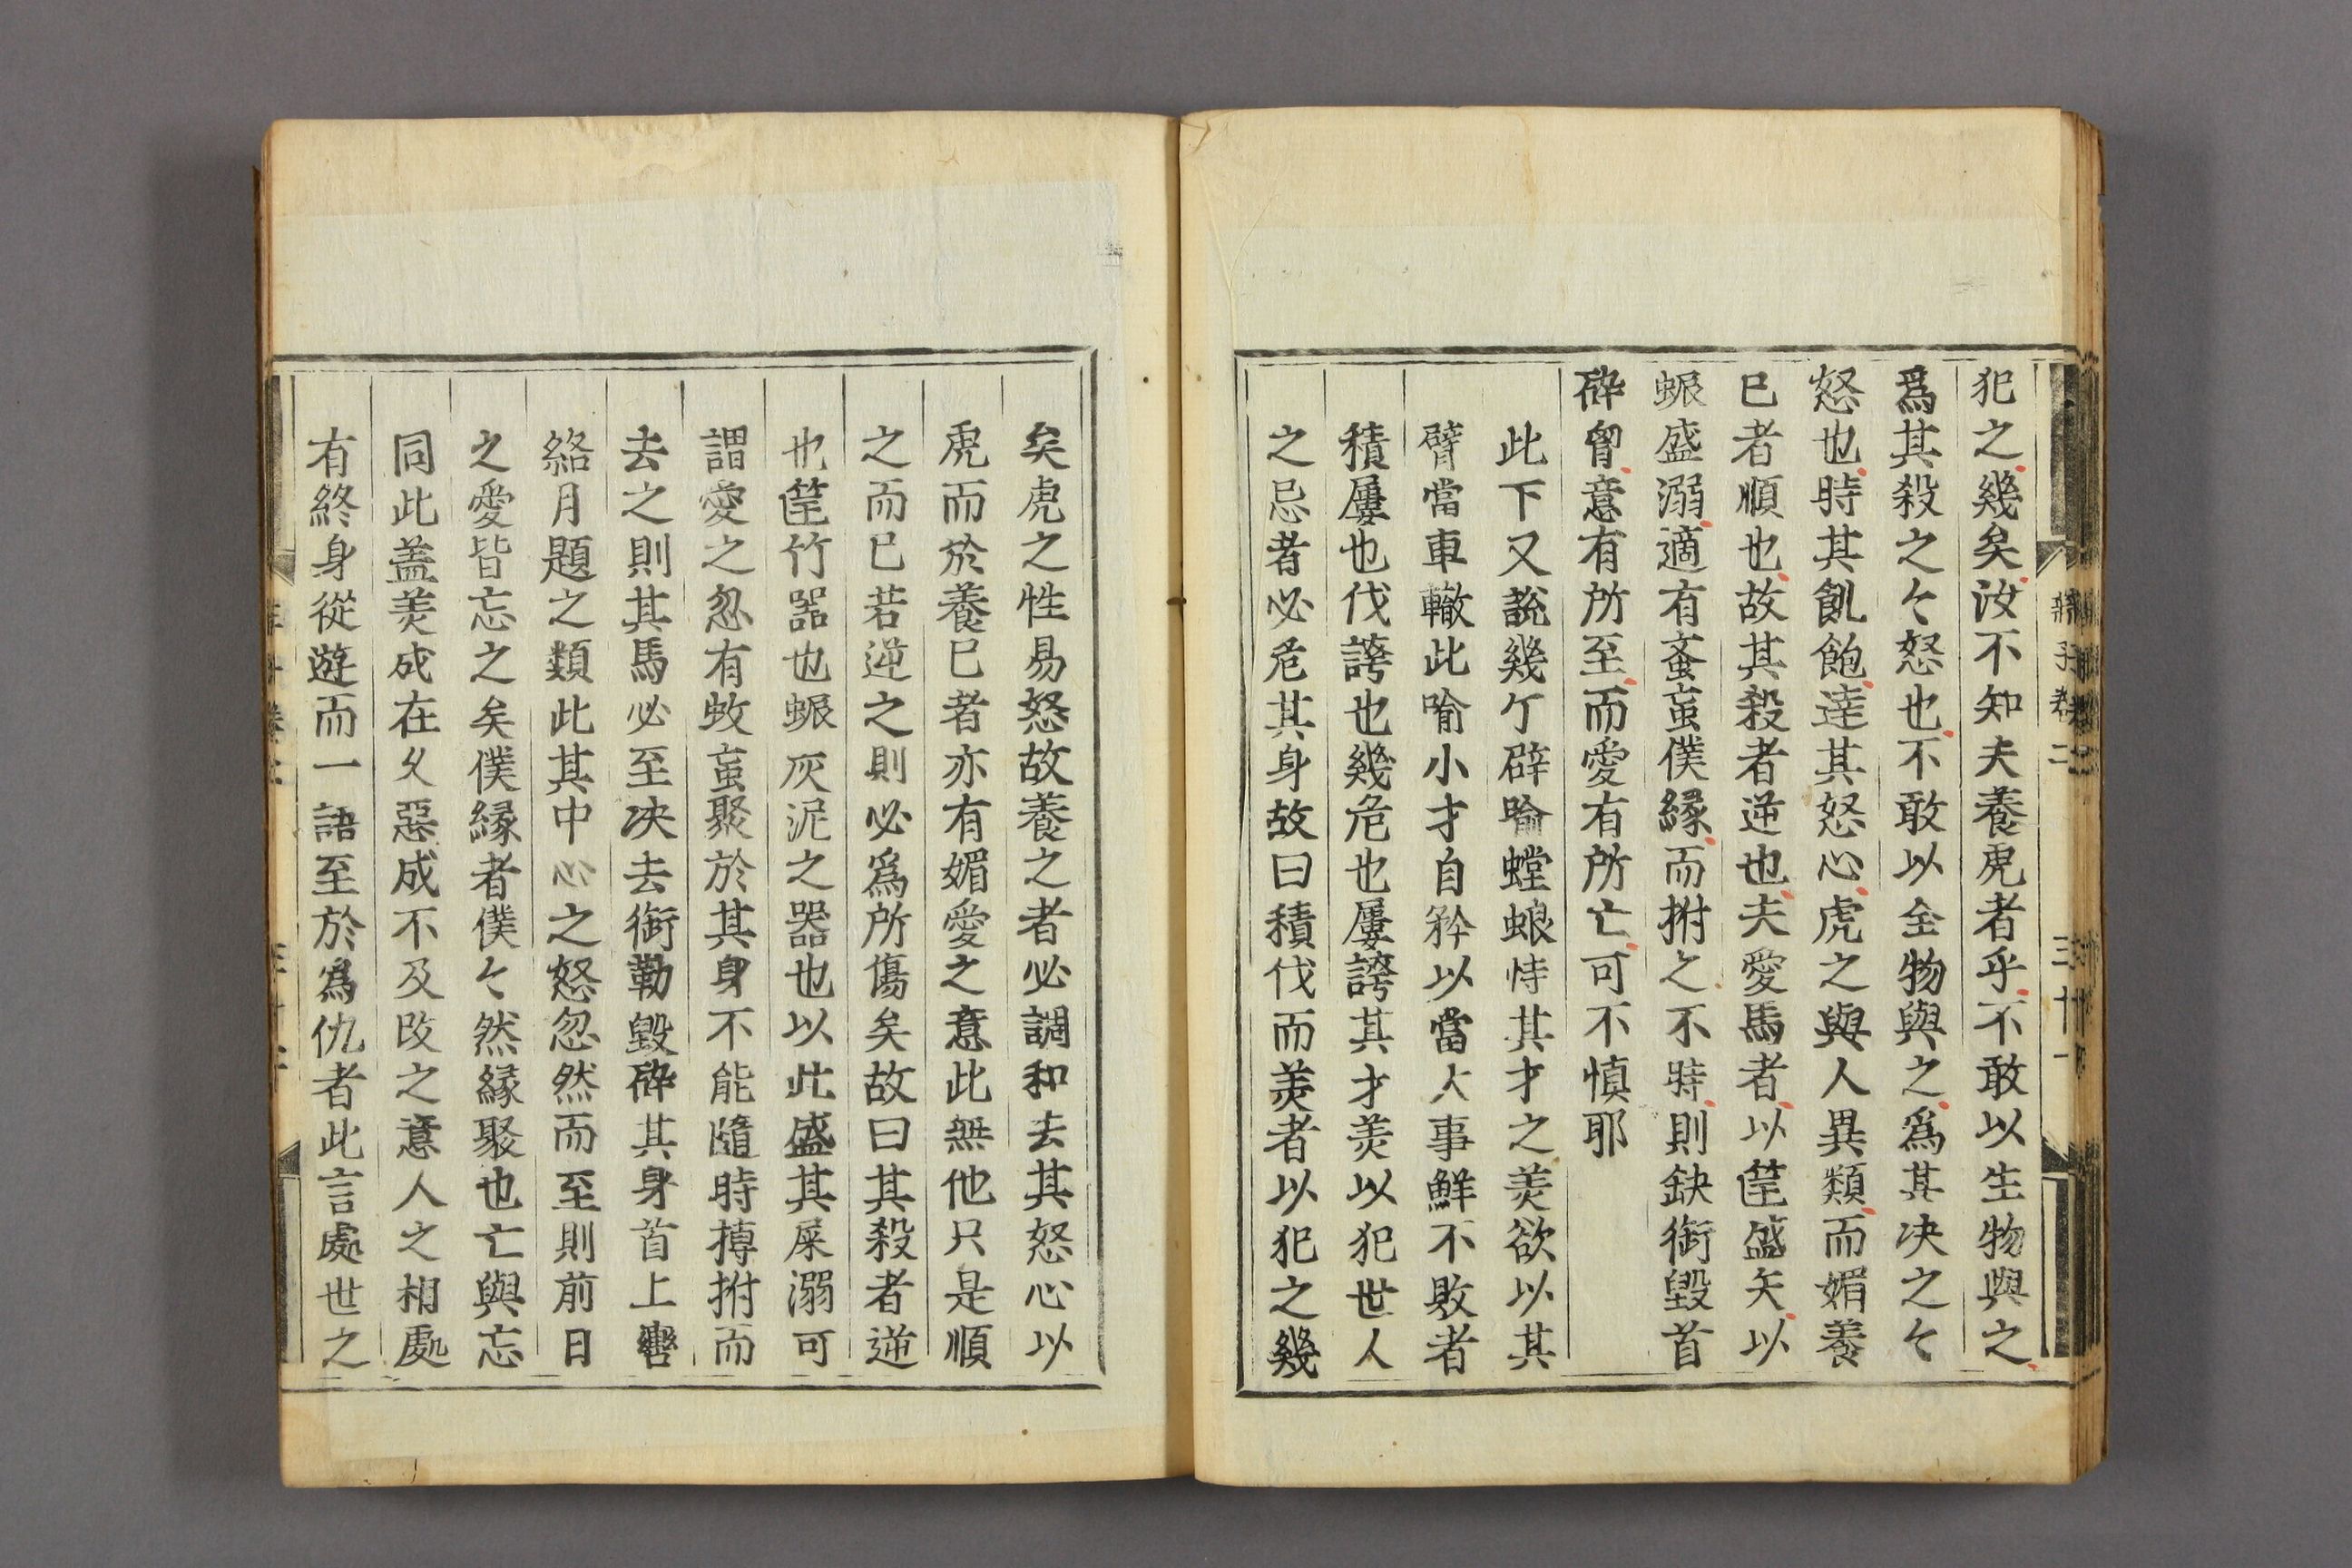 犯之幾矣汝不知夫養虎者乎不敢以生物與之
爲其殺之〻怒也不敢以全物與之爲其决之〻
怒也時其飢飽逹其怒心虎之與人異類而媚養
已者順也故其殺者逆也夫愛馬者以筐盛矢以
蜄盛溺適有蚉䖟僕緣而拊之不時則缺銜毀首
碎胷意有所至而愛有所亡可不慎耶
此下又說幾亇辟喻螳蜋恃其才之羙欲以其
臂當車轍此喻小才自矜以當大事鮮不敗者
積屢也伐誇也幾危也屢誇其才羙以犯世人
之忌者必危其身故曰積伐而羙者以犯之幾
矣虎之性易怒故養之者必調和去其怒心以
虎而於養已者亦有媚愛之意此無他只是順
之而已若逆之則必爲所傷矣故曰其殺者逆
也筐竹器也蜄灰泥之器也以此盛其屎溺可
謂愛之忽有蚊䖟聚於其身不能隨時搏拊而
去之則其馬必至决去銜勒毀碎其身首上轡
絡月題之類此其中心之怒忽然而至則前日
之愛皆忘之矣僕緣者僕〻然緣聚也亡與忘
同此盖羙成在久惡成不及改之意人之相處
有終身從遊而一語至於爲仇者此言處世之